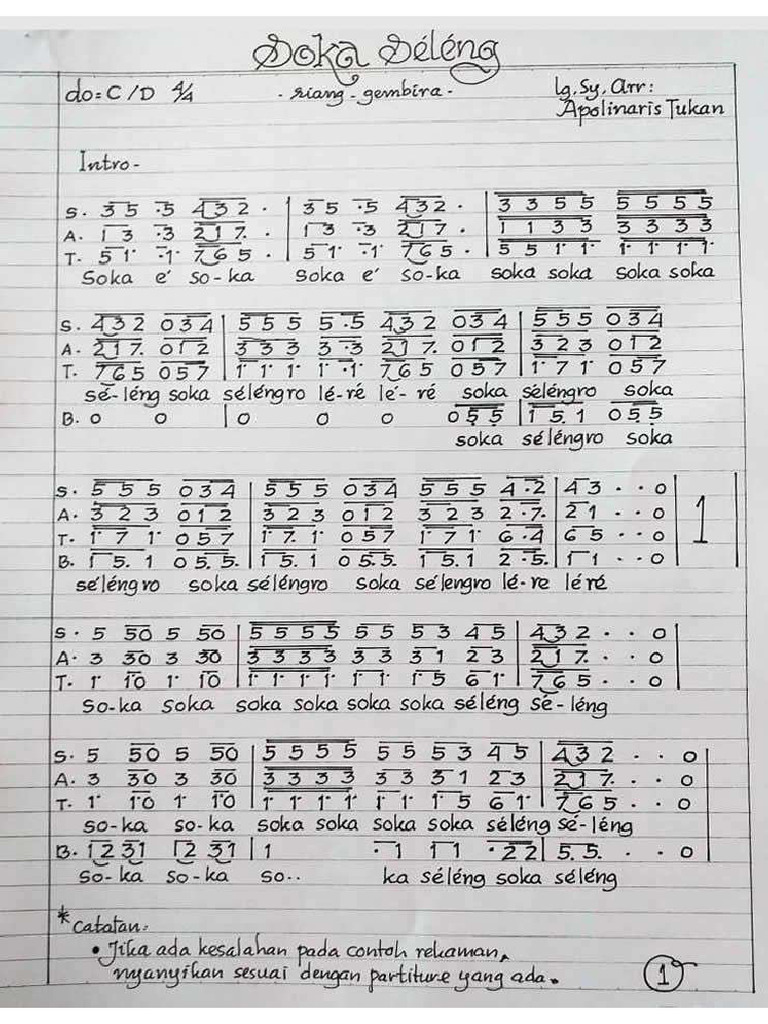 Soka Séléng
do = C/D 4/4 - riang - gembira - lg, Sy, Arr:
Apolinaris Tukan
Intro -
S. 3 5 .5 4 3 2 . | 3 5 .5 4 3 2 . | 3 3 5 5 5 5 5 5
A. 1 3 .3 2 1 7. . | 1 3 .3 2 1 7. . | 1 1 3 3 3 3 3 3
T. 5 1· .1· 7 6 5 . | 5 1· .1· 7 6 5 . | 5 5 1· 1· 1· 1· 1· 1·
Soka e' so-ka Soka e' so-ka soka soka soka soka
S. 4 3 2 0 3 4 | 5 5 5 5 .5 4 3 2 0 3 4 | 5 5 5 0 3 4
A. 2 1 7. 0 1 2 | 3 3 3 3 .3 2 1 7. 0 1 2 | 3 2 3 0 1 2
T. 7 6 5 0 5 7 | 1· 1· 1· 1· .1· 7 6 5 0 5 7 | 1· 7 1· 0 5 7
sé-léng soka séléngro lé-ré lé-ré soka séléngro soka
B. 0 0 | 0 0 0 0 5. 5. | 1 5. 1 0 5. 5.
soka séléngro soka
S. 5 5 5 0 3 4 | 5 5 5 0 3 4 5 5 5 4 .2 | 4 3 . . 0 | 1
A. 3 2 3 0 1 2 | 3 2 3 0 1 2 3 2 3 2 .7. | 2 1 . . 0
T. 1· 7 1· 0 5 7 | 1· 7 1· 0 5 7 1· 7 1· 6 .4 | 6 5 . . 0
B. 1 5. 1 0 5. 5. | 1 5. 1 0 5. 5. 1 5. 1 2 .5. | 1 1 . . 0
séléngro soka séléngro soka sélengro lé-re léré
S. 5 50 5 50 | 5 5 5 5 5 5 5 3 4 5 | 4 3 2 . . 0
A. 3 30 3 30 | 3 3 3 3 3 3 3 1 2 3 | 2 1 7. . . 0
T. 1· 1·0 1· 1·0 | 1· 1· 1· 1· 1· 1· 1· 5 6 1· | 7 6 5 . . 0
so-ka soka soka soka soka soka séléng sé-léng
S. 5 50 5 50 | 5 5 5 5 5 5 5 3 4 5 | 4 3 2 . . 0
A. 3 30 3 30 | 3 3 3 3 3 3 3 1 2 3 | 2 1 7. . . 0
T. 1· 1·0 1· 1·0 | 1· 1· 1· 1· 1· 1· 1· 5 6 1· | 7 6 5 . . 0
so-ka so-ka soka soka soka soka séléng sé-léng
B. 1 2 3 1 1 2 3 1 | 1 .1 1 1 .2 2 | 5. 5. . . 0
so-ka so-ka so.. ka séléng soka séléng
* Catatan:
• Jika ada kesalahan pada contoh rekaman,
nyanyikan sesuai dengan partiture yang ada.
1